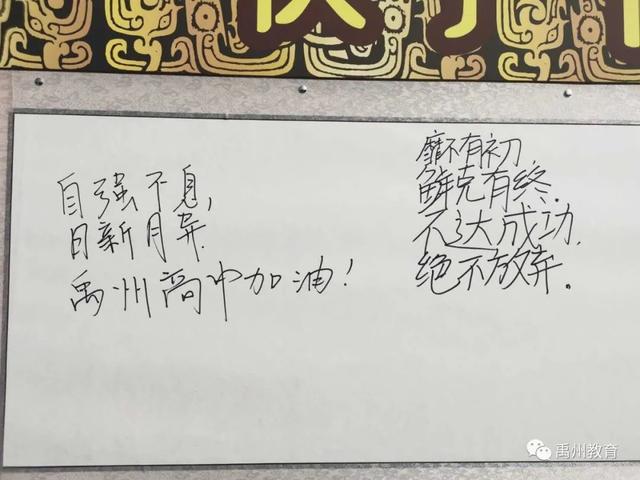 自强不息,
日新月异.
禹州高中加油!
靡不有初
鲜克有终.
不达成功,
绝不放弃。
禹州教育